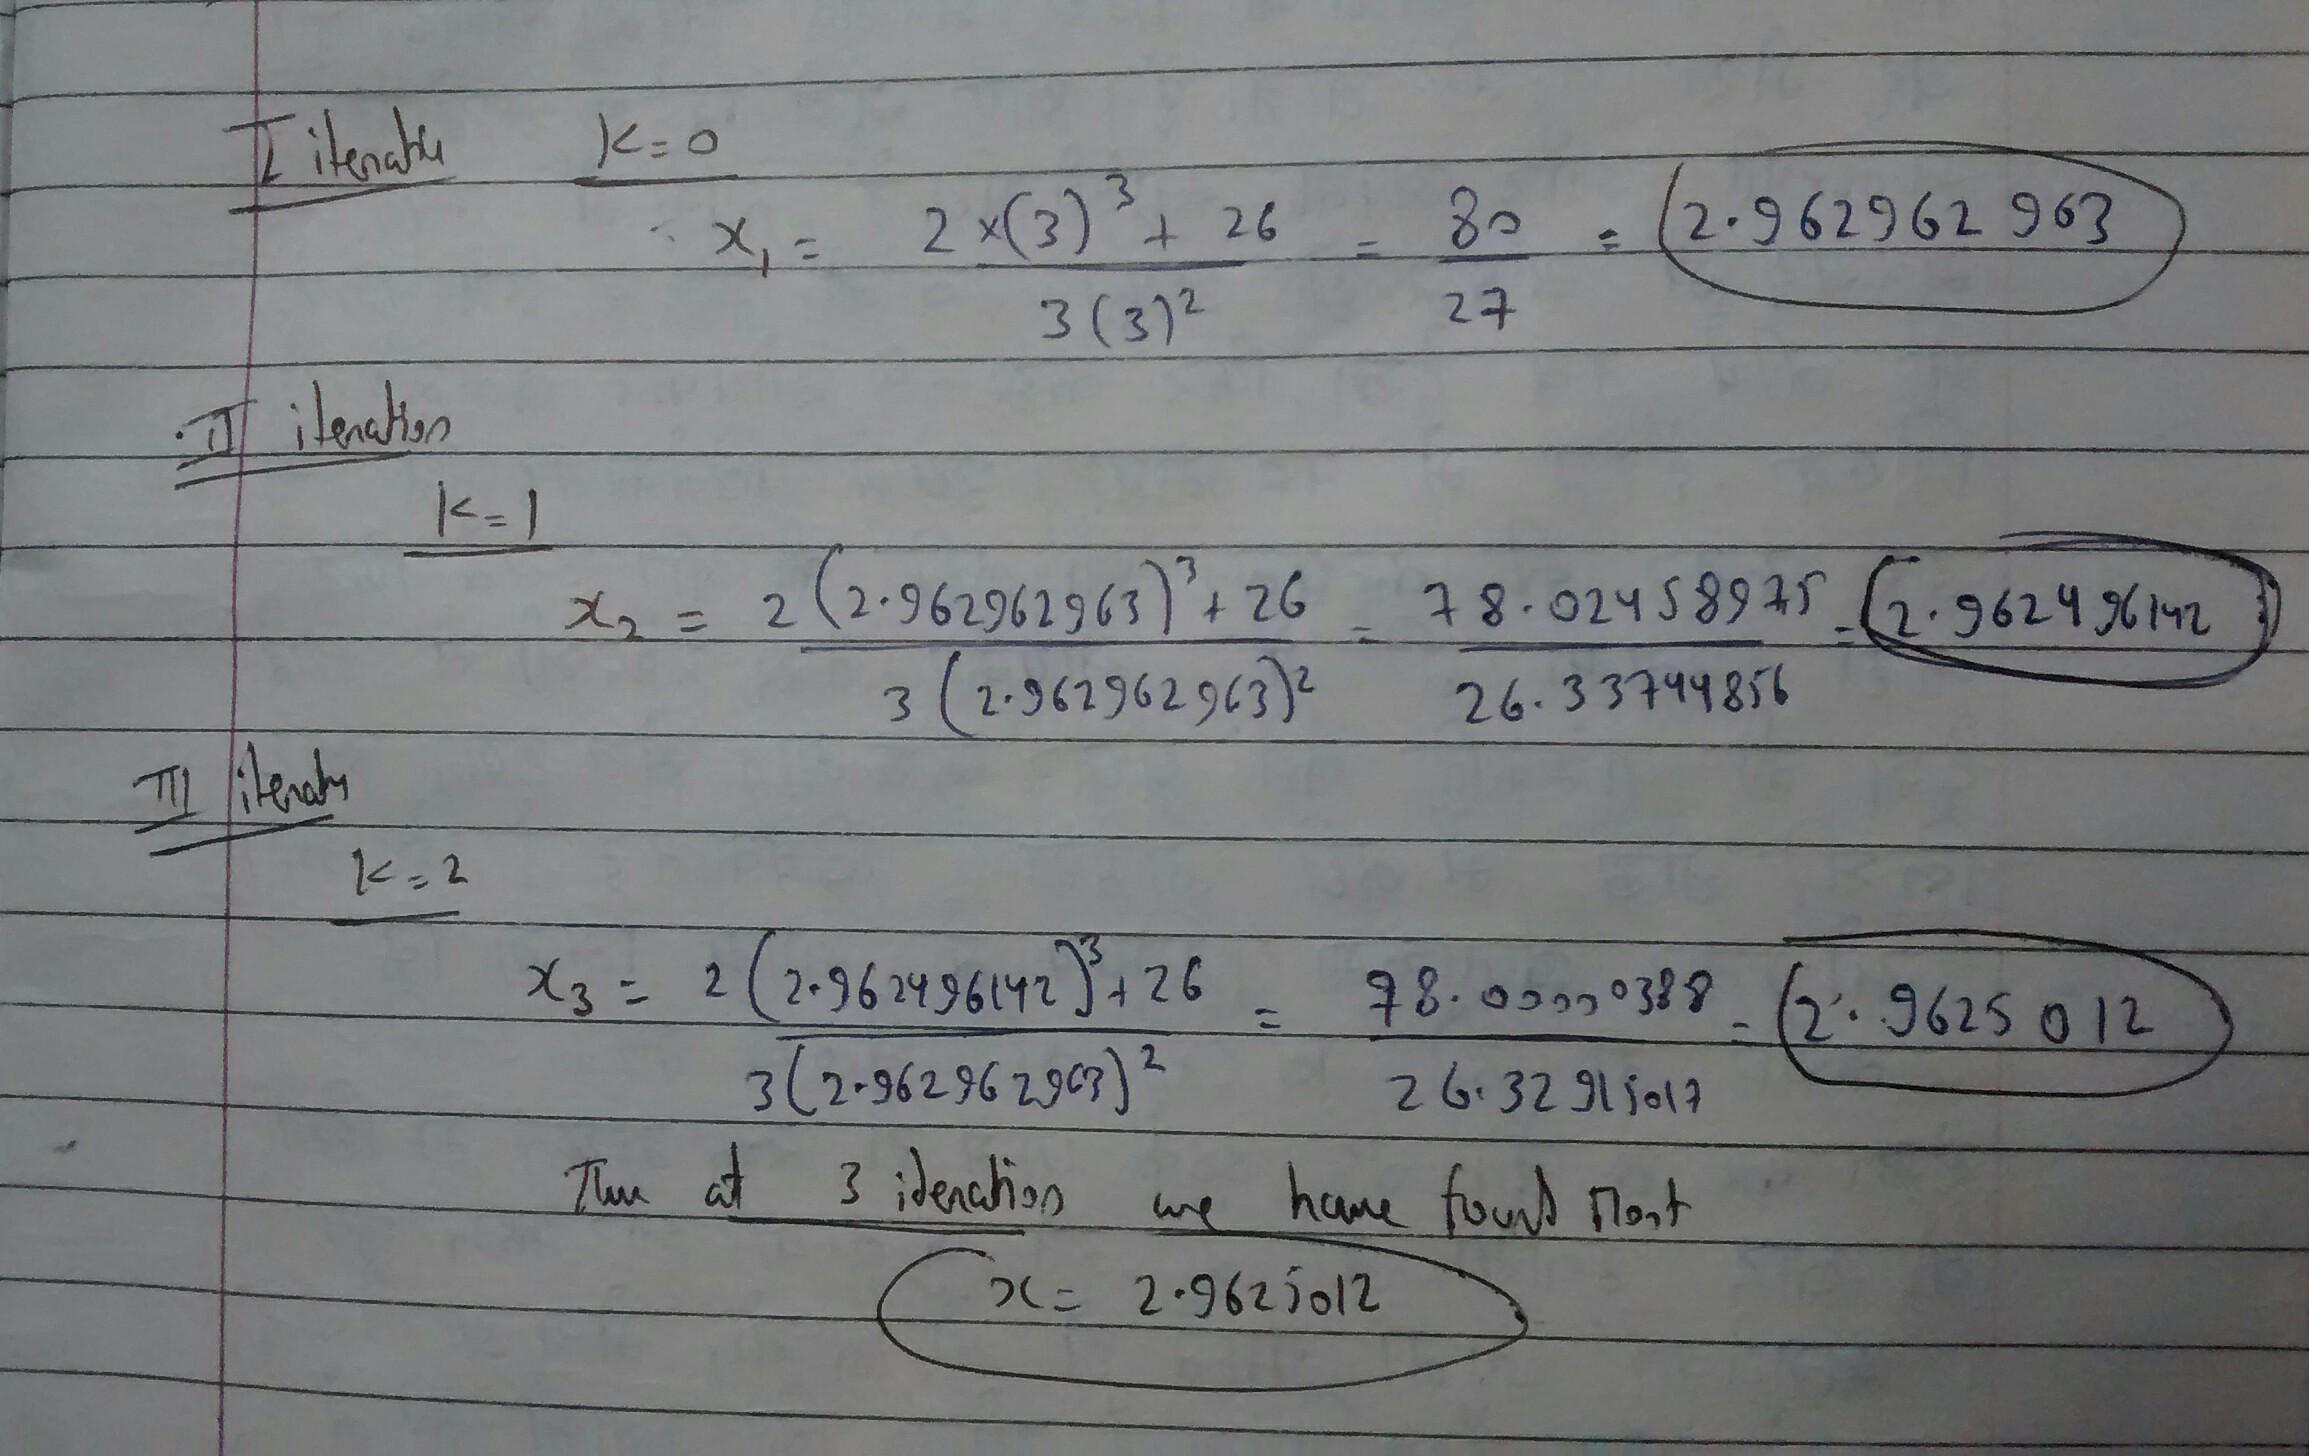 I iteration K=0
x₁ = 2×(3)³ + 26 / 3(3)² = 80 / 27 = 2.962962963
II iteration
K=1
x₂ = 2(2.962962963)³ + 26 / 3(2.962962963)² = 78.02458975 / 26.33744856 = 2.962496142
III iteration
K=2
x₃ = 2(2.962496142)³ + 26 / 3(2.962962963)² = 78.00000388 / 26.32915017 = 2.9625012
at 3 iteration we have found
x = 2.9625012